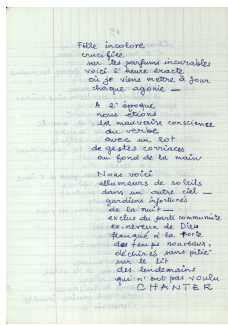 Fille incolore
crucifiée
sur les parfums incurables
voici l'heure exacte
où je viens mettre à jour
chaque agonie —
A l'époque
nous étions
la mauvaise conscience
du verbe
avec un lot
de gestes corriaces
au fond de la main
Nous voici
allumeurs de soleils
dans un autre ciel —
gardiens infortunés
de la nuit —
exclus du parti communiste
ex-neveux de Dieu
flanqué à la porte
des temps nouveaux,
déchirés sans pitié
sur le lit
des lendemains
qui n'ont pas voulu
CHANTER